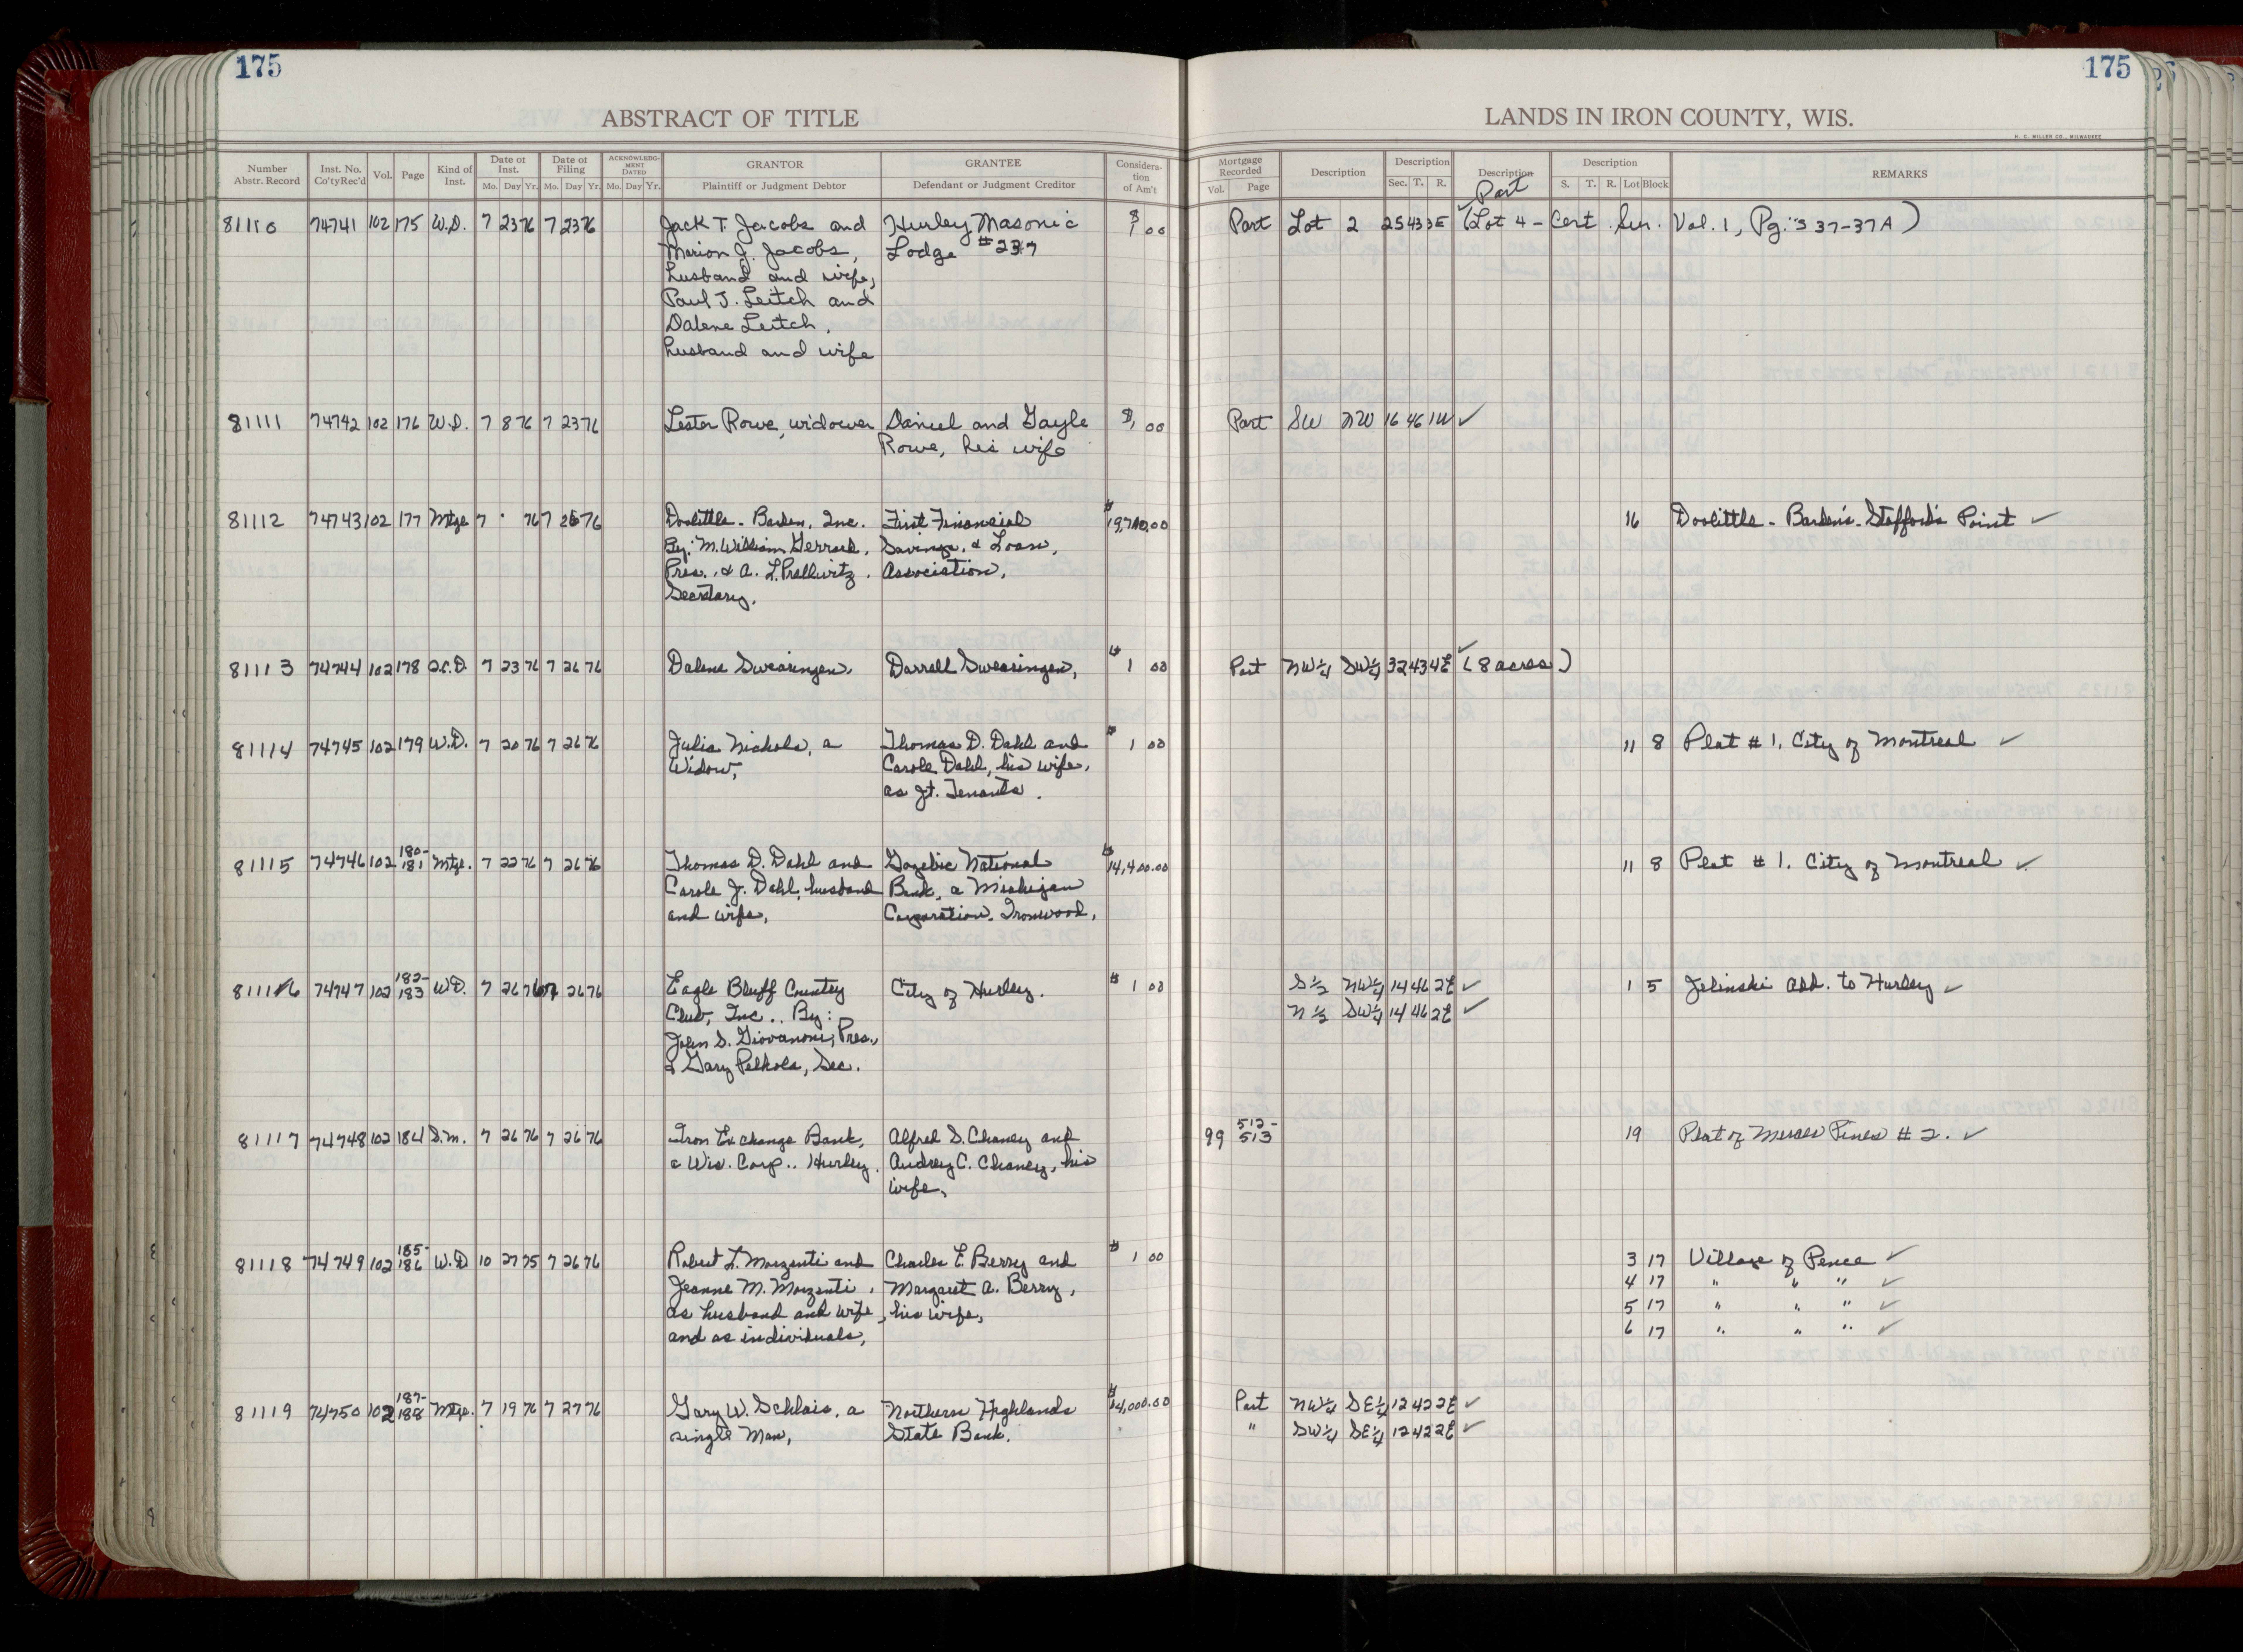 175
175
ABSTRACT OF TITLE
LANDS IN IRON COUNTY, WIS.
H. C. MILLER CO., MILWAUKEE
Number Abstr. Record | Inst. No. Co'ty Rec'd | Vol. | Page | Kind of Inst. | Date of Inst. Mo. Day Yr. | Date of Filing Mo. Day Yr. | ACKNOWLEDGMENT DATED Mo. Day Yr. | GRANTOR Plaintiff or Judgment Debtor | GRANTEE Defendant or Judgment Creditor | Considera-tion of Am't | Mortgage Recorded Vol. Page | Description | Description Sec. T. R. | Description | Description S. T. R. Lot Block | REMARKS
Part
81110 74741 102 175 W.D. 7 23 76 7 23 76 Jack T. Jacobs and Hurley Masonic $1 00 Part Lot 2 25 43 3E (Lot 4 - Cert. Sur. Vol. 1, Pg.'s 37-37A)
Marion J. Jacobs, Lodge #237
husband and wife,
Paul J. Leitch and
Dalene Leitch,
husband and wife
81111 74742 102 176 W.D. 7 8 76 7 23 76 Lester Rowe, widower Daniel and Gayle $1 00 Part SW NW 16 46 1W ✓
Rowe, his wife
81112 74743 102 177 Mtge 7 76 7 26 76 Doolittle - Barden, Inc. First Financial $19,700.00 16 Doolittle - Barden's - Stafford's Point ✓
By: M. William Gerrard, Savings & Loan,
Pres., & A. L. Prellwitz, Association,
Secretary.
81113 74744 102 178 Q.C.D. 7 23 76 7 26 76 Dalene Swearingen, Darrell Swearingen, $1 00 Part NW¼ SW¼ 32 43 4E ✓ (8 acres)
81114 74745 102 179 W.D. 7 20 76 7 26 76 Julia Nichols, a Thomas D. Dahl and $1 00 11 8 Plat #1, City of Montreal ✓
Widow, Carole Dahl, his wife,
as Jt. Tenants.
81115 74746 102 180-181 Mtge. 7 22 76 7 26 76 Thomas D. Dahl and Gogebic National $14,400.00 11 8 Plat #1, City of Montreal ✓
Carole J. Dahl, husband Bank, a Michigan
and wife, Corporation, Ironwood,
81116 74747 102 182-183 W.D. 7 26 76 7 26 76 Eagle Bluff Country City of Hurley. $1 00 S½ NW¼ 14 46 2E ✓ 1 5 Jelinski Add. to Hurley ✓
Club, Inc., By: N½ SW¼ 14 46 2E ✓
John S. Giovanoni, Pres.,
& Gary Pelkola, Sec.
81117 74748 102 184 S.M. 7 26 76 7 26 76 Iron Exchange Bank, Alfred S. Chaney and 99 512-513 19 Plat of Mercer Pines #2. ✓
a Wis. Corp., Hurley, Audrey C. Chaney, his
wife,
81118 74749 102 185-186 W.D 10 27 75 7 26 76 Robert L. Morzenti and Charles E. Berry and $1 00 3 17 Village of Pence ✓
Jeanne M. Morzenti, Margaret A. Berry, 4 17 " " " ✓
as husband and wife, his wife, 5 17 " " " ✓
and as individuals, 6 17 " " " ✓
81119 74750 102 187-188 Mtge. 7 19 76 7 27 76 Gary W. Schlais, a Northern Highlands $14,000.00 Part NW¼ SE¼ 12 42 2E ✓
single Man, State Bank. " SW¼ SE¼ 12 42 2E ✓